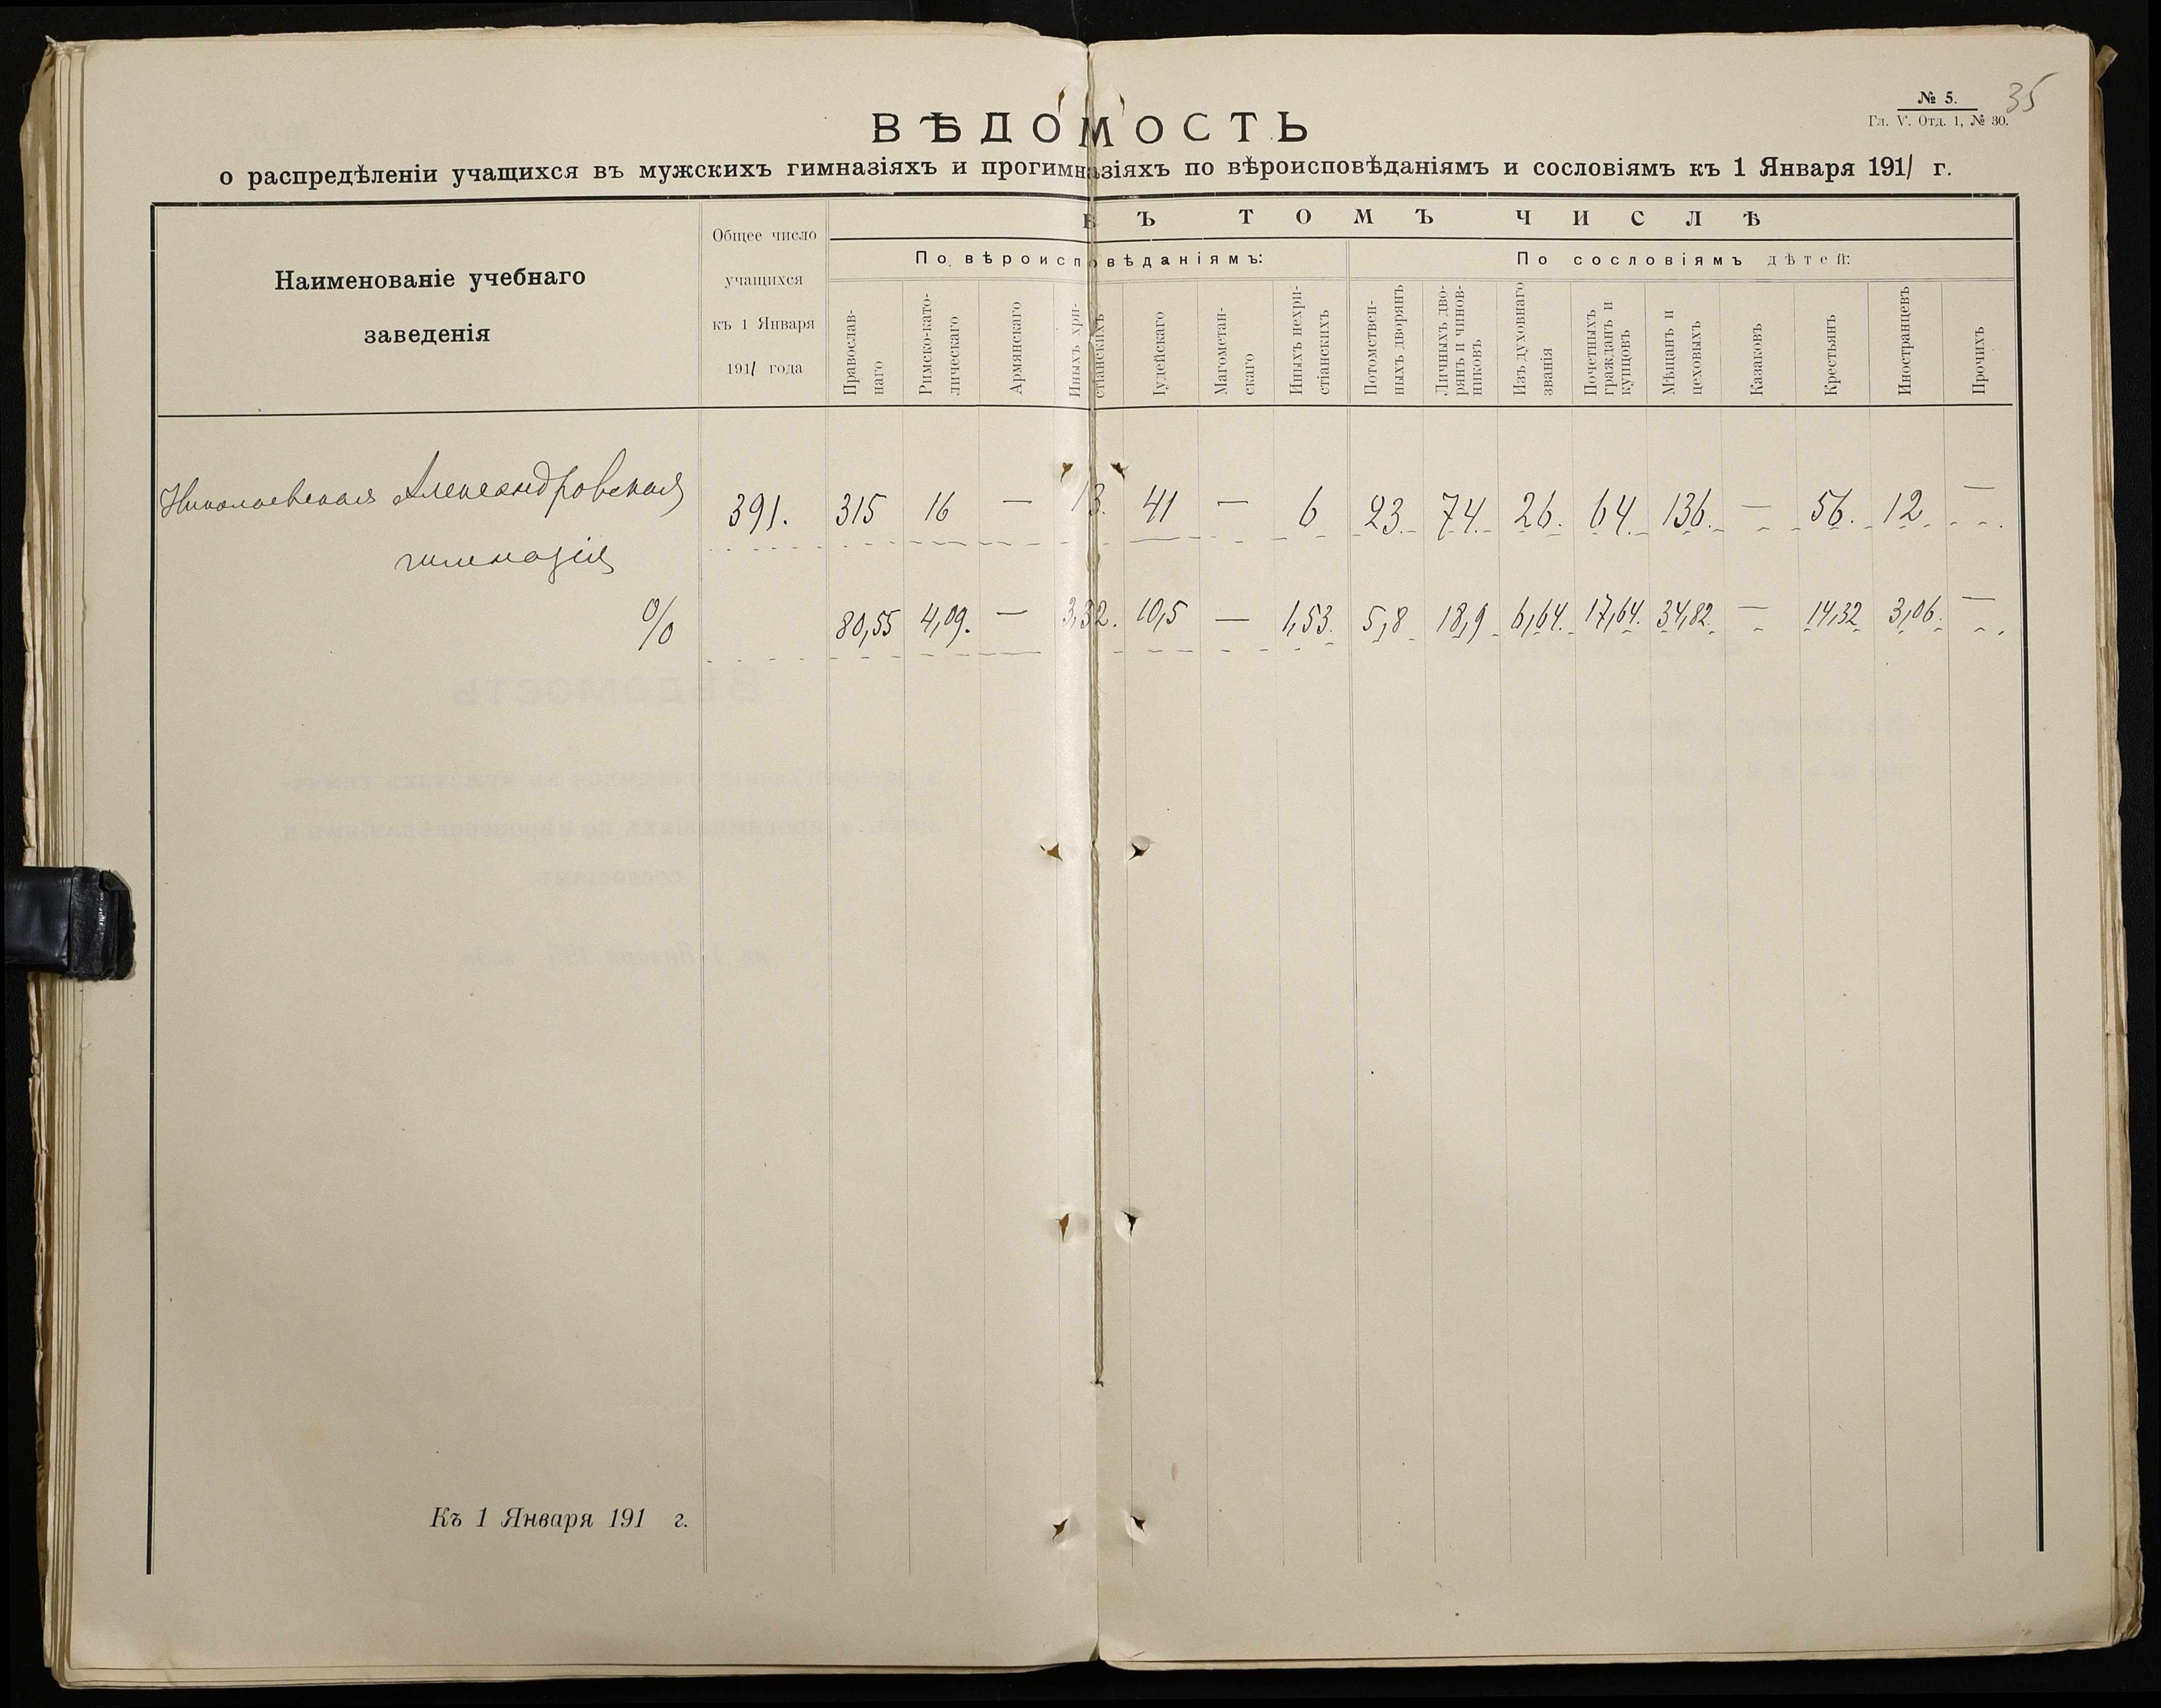 № 5.
35
Гл. V. Отд. 1, № 30.
ВѢДОМОСТЬ
о распредѣленіи учащихся въ мужскихъ гимназіяхъ и прогимназіяхъ по вѣроисповѣданіямъ и сословіямъ къ 1 Января 1911 г.
Наименованіе учебнаго
заведенія
Общее число
учащихся
къ 1 Января
1911 года
ВЪ ТОМЪ ЧИСЛѢ
По вѣроисповѣданіямъ:
По сословіямъ дѣтей:
Православ-
наго
Римско-като-
лическаго
Армянскаго
Иныхъ хри-
стіанскихъ
Іудейскаго
Магометан-
скаго
Иныхъ нехри-
стіанскихъ
Потомствен-
ныхъ дворянъ
Личныхъ дво-
рянъ и чинов-
никовъ
Изъ духовнаго
званія
Почетныхъ
гражданъ и
купцовъ
Мѣщанъ и
цеховыхъ
Казаковъ
Крестьянъ
Иностранцевъ
Прочихъ
Николаевская Александровская
гимназія
391. 315 16 — 13. 41 — 6 23. 74. 26. 64. 136. — 56. 12 —
% 80,55 4,09. — 3,32. 10,5 — 1,53. 5,8 18,9 6,64. 17,64. 34,82. — 14,32 3,06. —
Къ 1 Января 191 г.